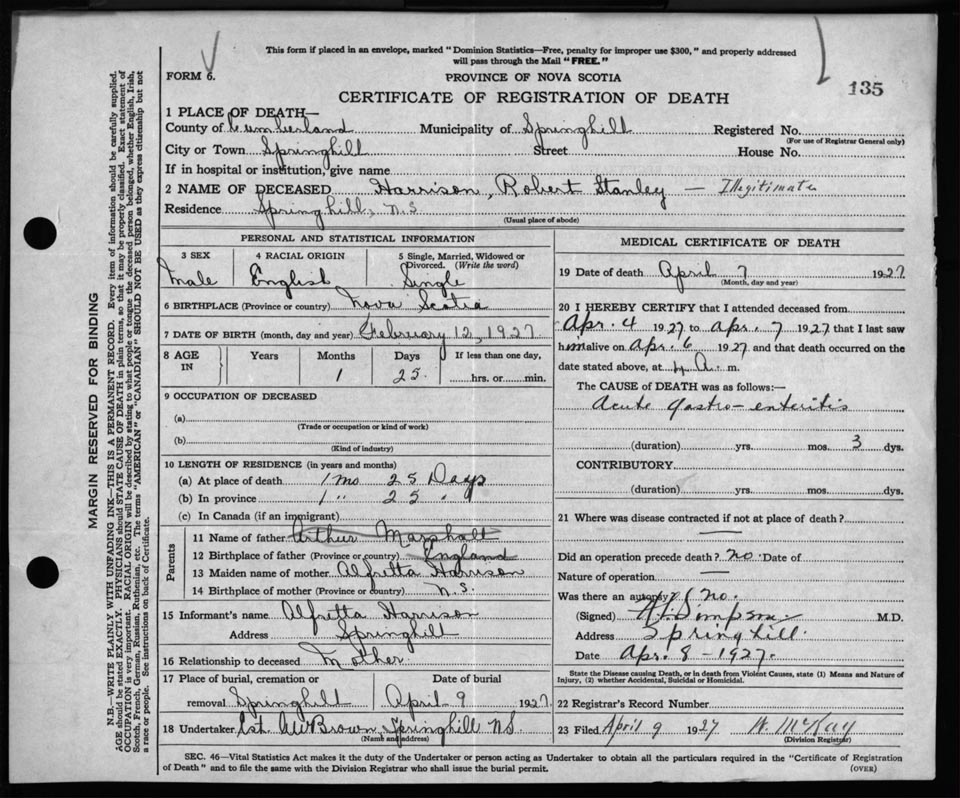 This form if placed in an envelope, marked "Dominion Statistics—Free, penalty for improper use $300," and properly addressed
will pass through the Mail "FREE."
FORM 6.
PROVINCE OF NOVA SCOTIA
135
CERTIFICATE OF REGISTRATION OF DEATH
1 PLACE OF DEATH—
County of Cumberland Municipality of Springhill Registered No.
(For use of Registrar General only)
City or Town Springhill Street House No.
If in hospital or institution, give name
2 NAME OF DECEASED Harrison, Robert Stanley — Illegitimate
Residence Springhill, N.S.
(Usual place of abode)
PERSONAL AND STATISTICAL INFORMATION
3 SEX 4 RACIAL ORIGIN 5 Single, Married, Widowed or
Divorced. (Write the word)
Male English Single
6 BIRTHPLACE (Province or country) Nova Scotia
7 DATE OF BIRTH (month, day and year) February 12, 1927
8 AGE IN Years Months Days If less than one day,
1 25 hrs. or min.
9 OCCUPATION OF DECEASED
(a)
(Trade or occupation or kind of work)
(b)
(Kind of industry)
10 LENGTH OF RESIDENCE (in years and months)
(a) At place of death 1 mo 25 Days
(b) In province 1 " 25 "
(c) In Canada (if an immigrant)
Parents
11 Name of father Arthur Marshall
12 Birthplace of father (Province or country) England
13 Maiden name of mother Alfretta Harrison
14 Birthplace of mother (Province or country) N.S.
15 Informant's name Alfretta Harrison
Address Springhill
16 Relationship to deceased Mother
17 Place of burial, cremation or Date of burial
removal Springhill April 9 1927
18 Undertaker Est. AW Brown, Springhill NS
(Name and address)
MEDICAL CERTIFICATE OF DEATH
19 Date of death April 7 1927
(Month, day and year)
20 I HEREBY CERTIFY that I attended deceased from
Apr. 4 1927 to Apr. 7 1927 that I last saw
him alive on Apr. 6 1927 and that death occurred on the
date stated above, at A. m.
The CAUSE OF DEATH was as follows:—
Acute gastro-enteritis
(duration) yrs. mos. 3 dys.
CONTRIBUTORY
(duration) yrs. mos. dys.
21 Where was disease contracted if not at place of death?
—
Did an operation precede death? no. Date of
Nature of operation —
Was there an autopsy? no.
(Signed) Simpson M.D.
Address Springhill.
Date Apr. 8 - 1927.
State the Disease causing Death, or in death from Violent Causes, state (1) Means and Nature of
Injury, (2) whether Accidental, Suicidal or Homicidal.
22 Registrar's Record Number
23 Filed April 9 1927 H. McKay
(Division Registrar)
SEC. 46—Vital Statistics Act makes it the duty of the Undertaker or person acting as Undertaker to obtain all the particulars required in the "Certificate of Registration
of Death" and to file the same with the Division Registrar who shall issue the burial permit. (OVER)
MARGIN RESERVED FOR BINDING
N.B.—WRITE PLAINLY WITH UNFADING INK—THIS IS A PERMANENT RECORD. Every item of information should be carefully supplied.
AGE should be stated EXACTLY. PHYSICIANS should STATE CAUSE OF DEATH in plain terms, so that it may be properly classified. Exact statement of
OCCUPATION is very important. RACIAL ORIGIN will be described by stating to what people or tongue the deceased person belonged, whether English, Irish,
Scotch, French, German, Russian, Ruthenian, etc. The terms "AMERICAN" or "CANADIAN" SHOULD NOT BE USED as they express citizenship but not
a race or people. See instructions on back of Certificate.